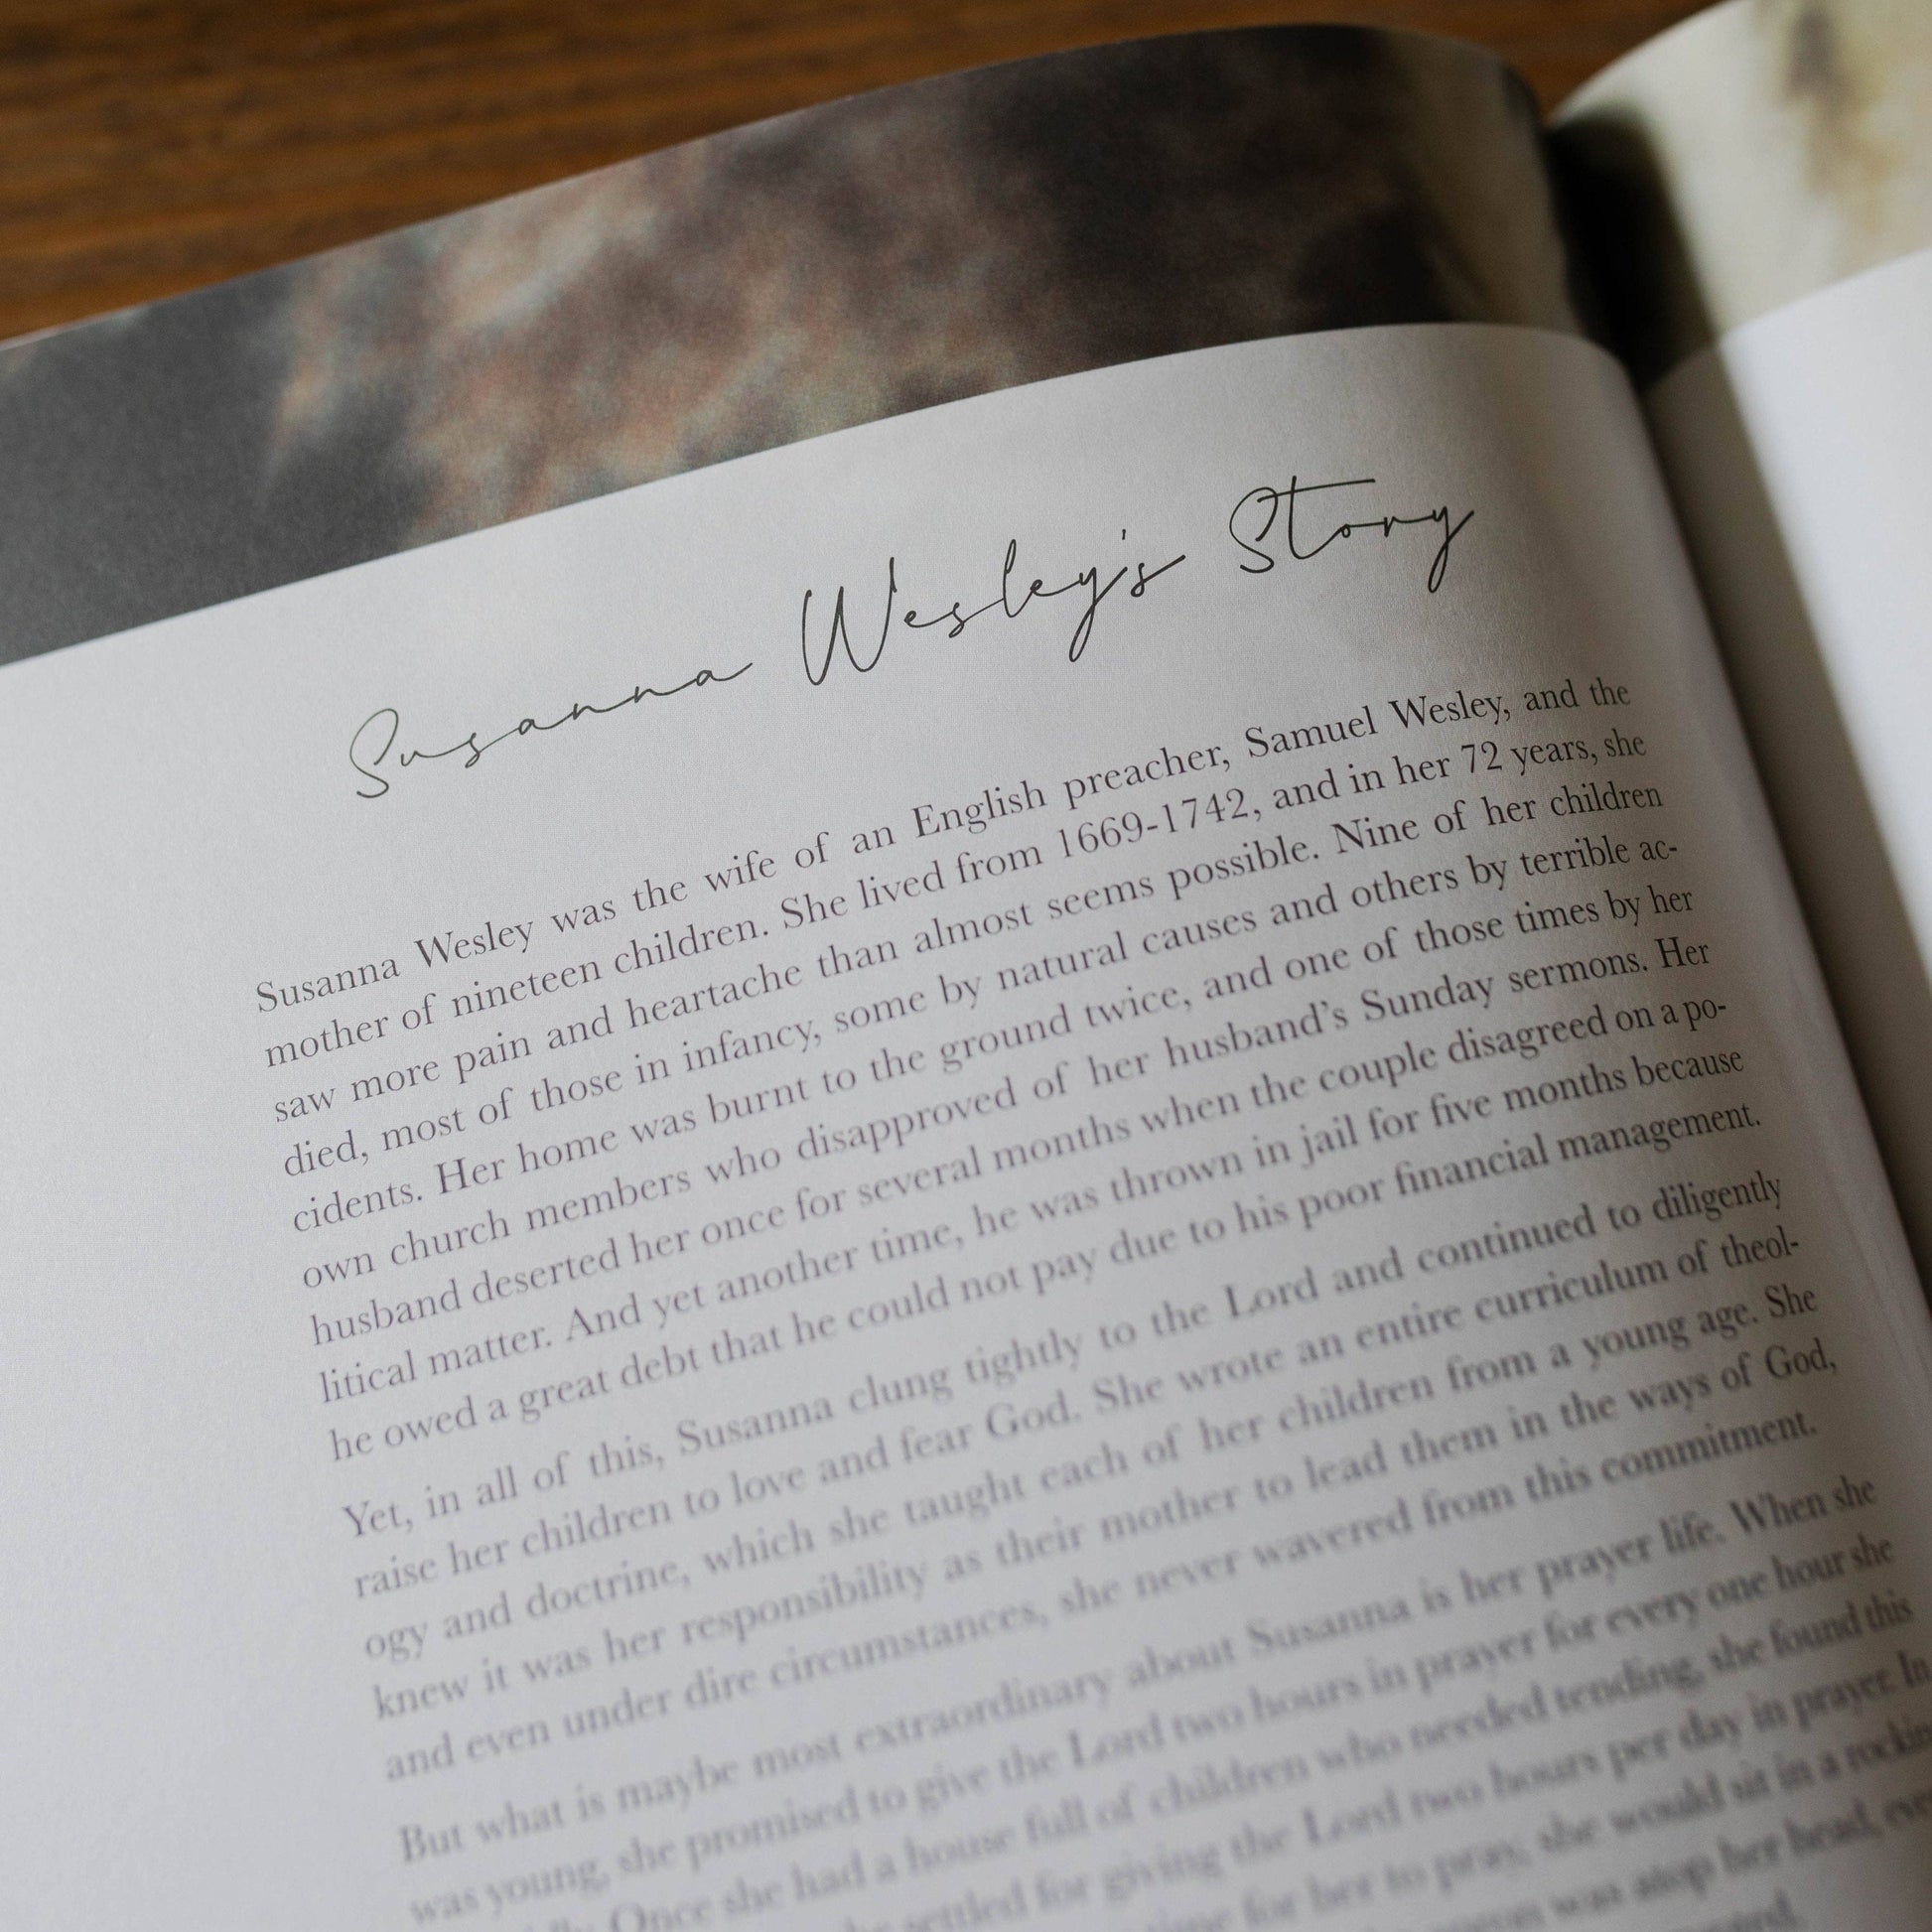 Susanna Wesley's Story
Susanna Wesley was the wife of an English preacher, Samuel Wesley, and the
mother of nineteen children. She lived from 1669-1742, and in her 72 years, she
saw more pain and heartache than almost seems possible. Nine of her children
died, most of those in infancy, some by natural causes and others by terrible ac-
cidents. Her home was burnt to the ground twice, and one of those times by her
own church members who disapproved of her husband's Sunday sermons. Her
husband deserted her once for several months when the couple disagreed on a po-
litical matter. And yet another time, he was thrown in jail for five months because
he owed a great debt that he could not pay due to his poor financial management.
Yet, in all of this, Susanna clung tightly to the Lord and continued to diligently
raise her children to love and fear God. She wrote an entire curriculum of theol-
ogy and doctrine, which she taught each of her children from a young age. She
knew it was her responsibility as their mother to lead them in the ways of God,
and even under dire circumstances, she never wavered from this commitment.
But what is maybe most extraordinary about Susanna is her prayer life. When she
was young, she promised to give the Lord two hours in prayer for every one hour she
Once she had a house full of children who needed tending, she found this
settled for giving the Lord two hours per day in prayer. In
time for her to pray, she would sit in a
was atop her head,